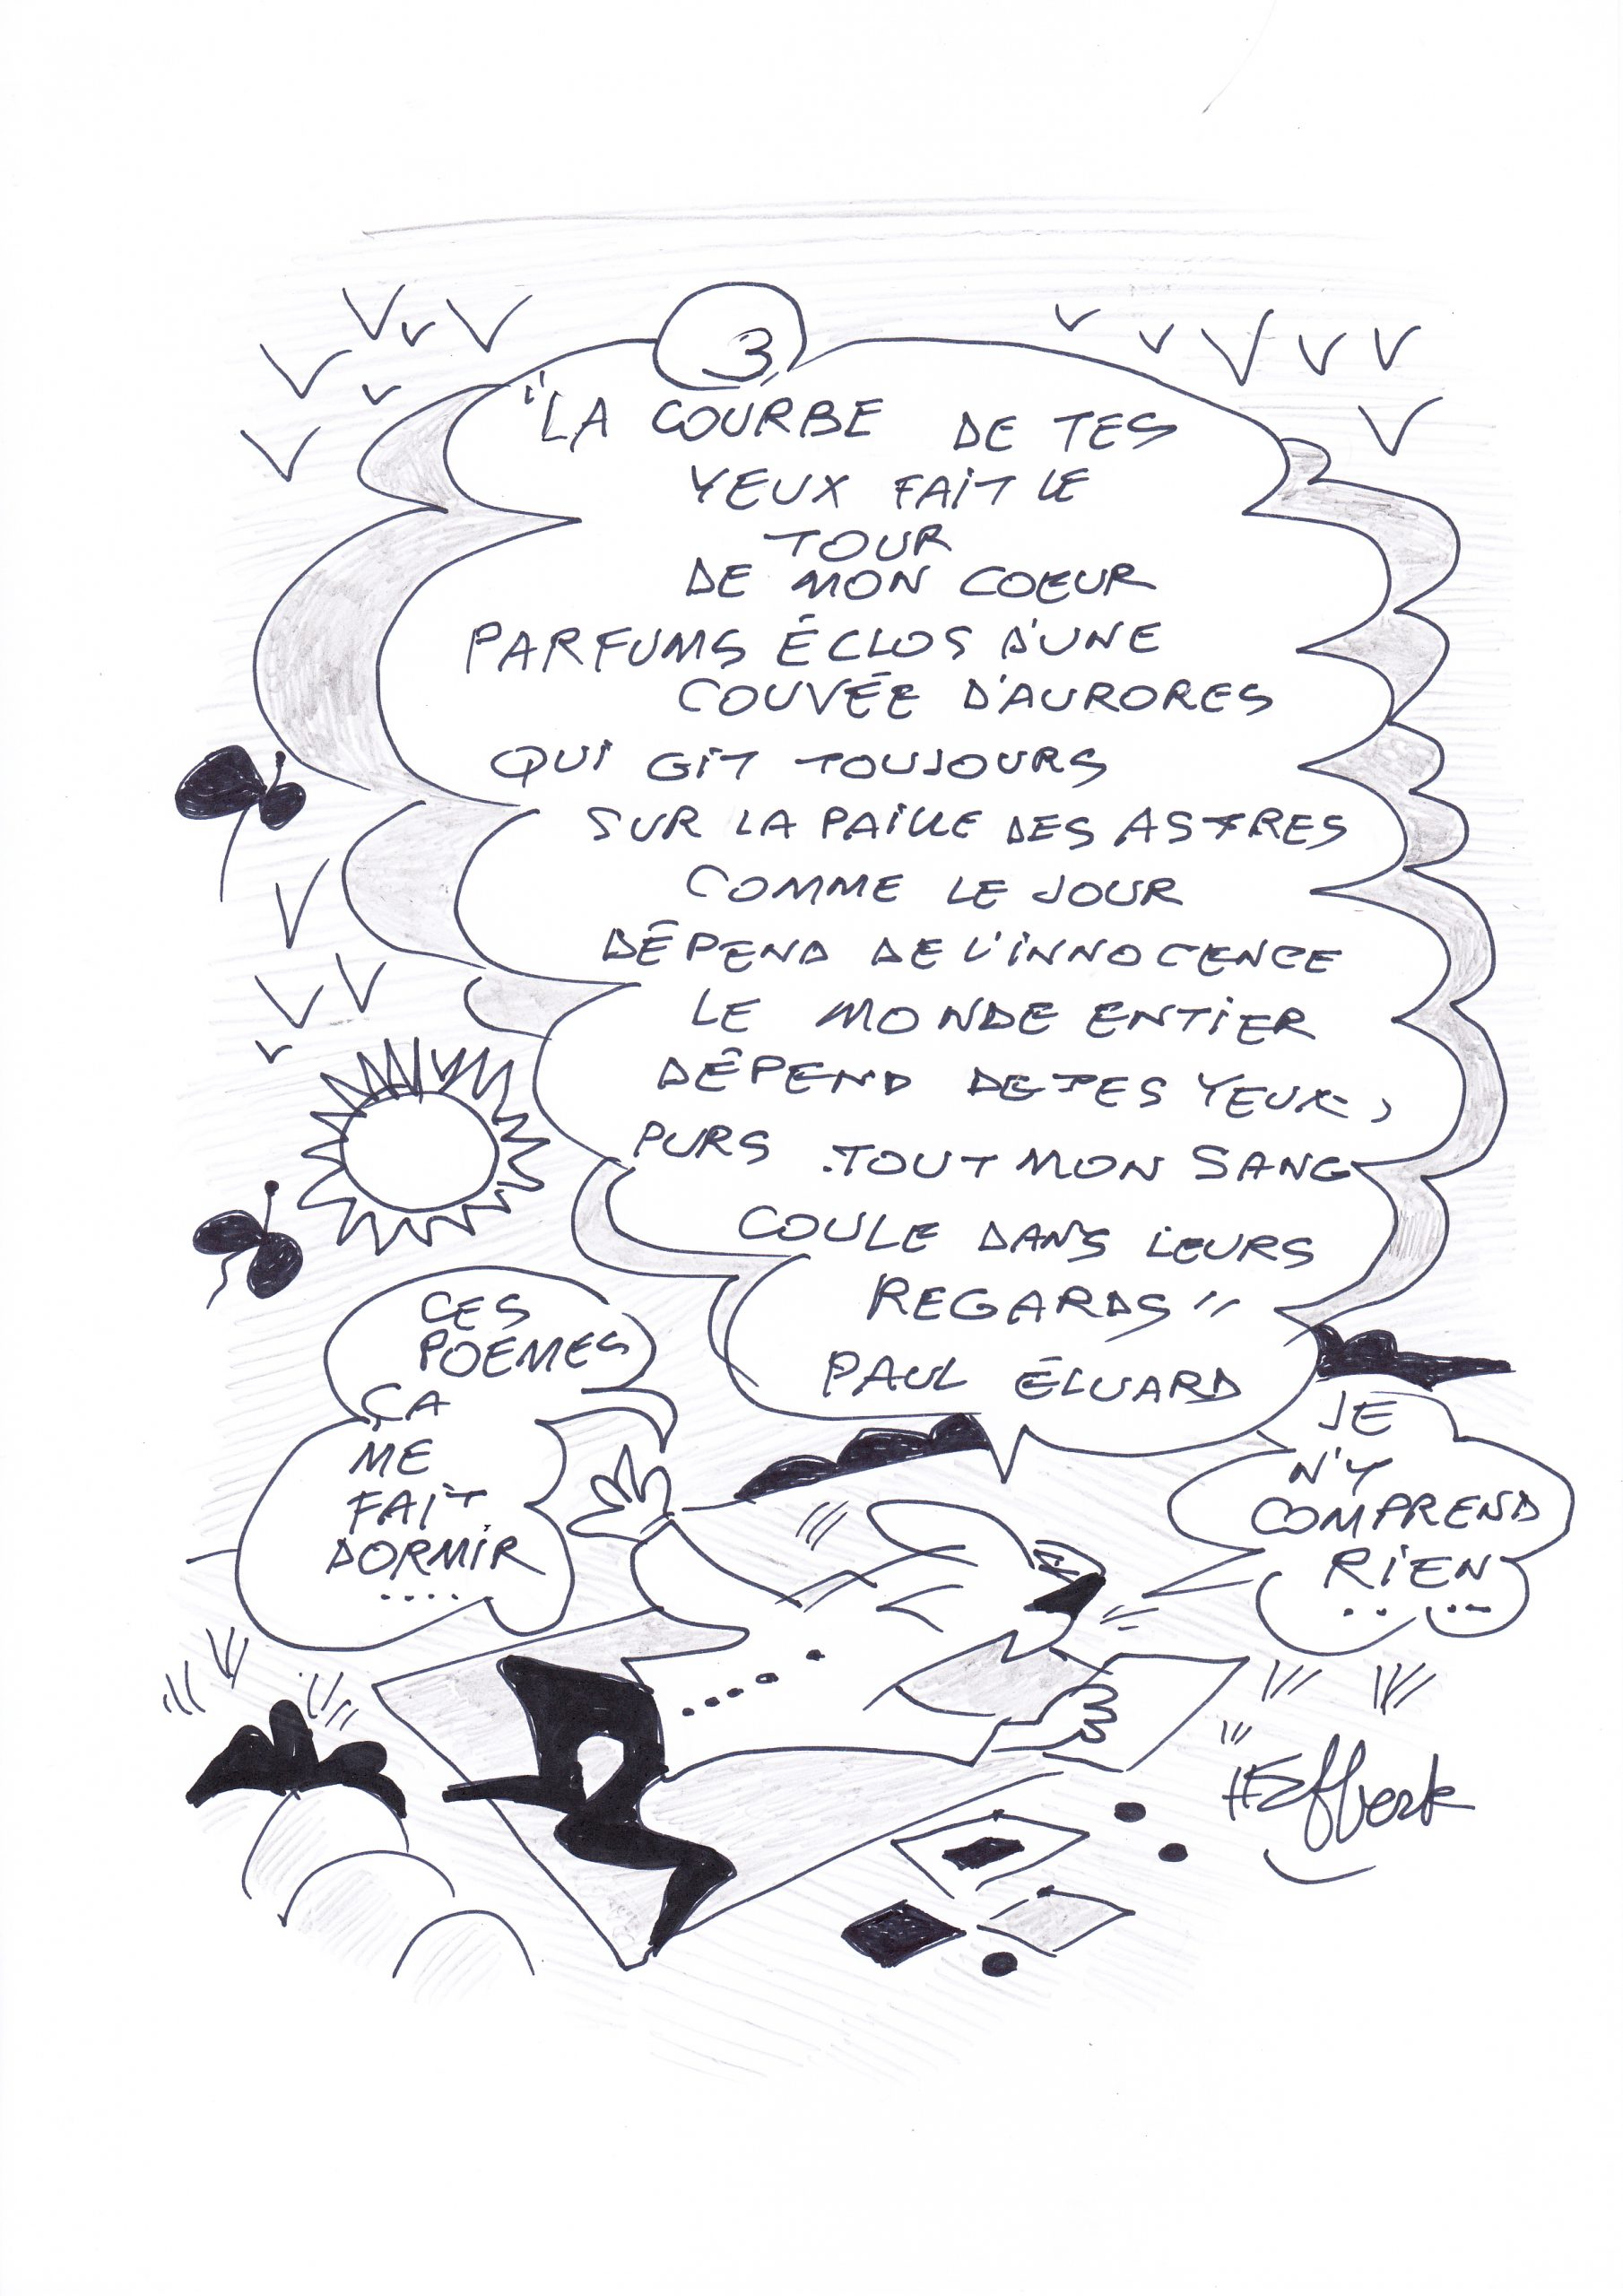 3
"LA COURBE DE TES
YEUX FAIT LE
TOUR
DE MON COEUR
PARFUMS ÉCLOS D'UNE
COUVÉE D'AURORES
QUI GIT TOUJOURS
SUR LA PAILLE DES ASTRES
COMME LE JOUR
DÉPEND DE L'INNOCENCE
LE MONDE ENTIER
DÉPEND DE TES YEUX,
PURS . TOUT MON SANG
COULE DANS LEURS
REGARDS"
PAUL ÉLUARD
CES
POEMES
ÇA
ME
FAIT
DORMIR
....
JE
N'Y
COMPREND
RIEN
....